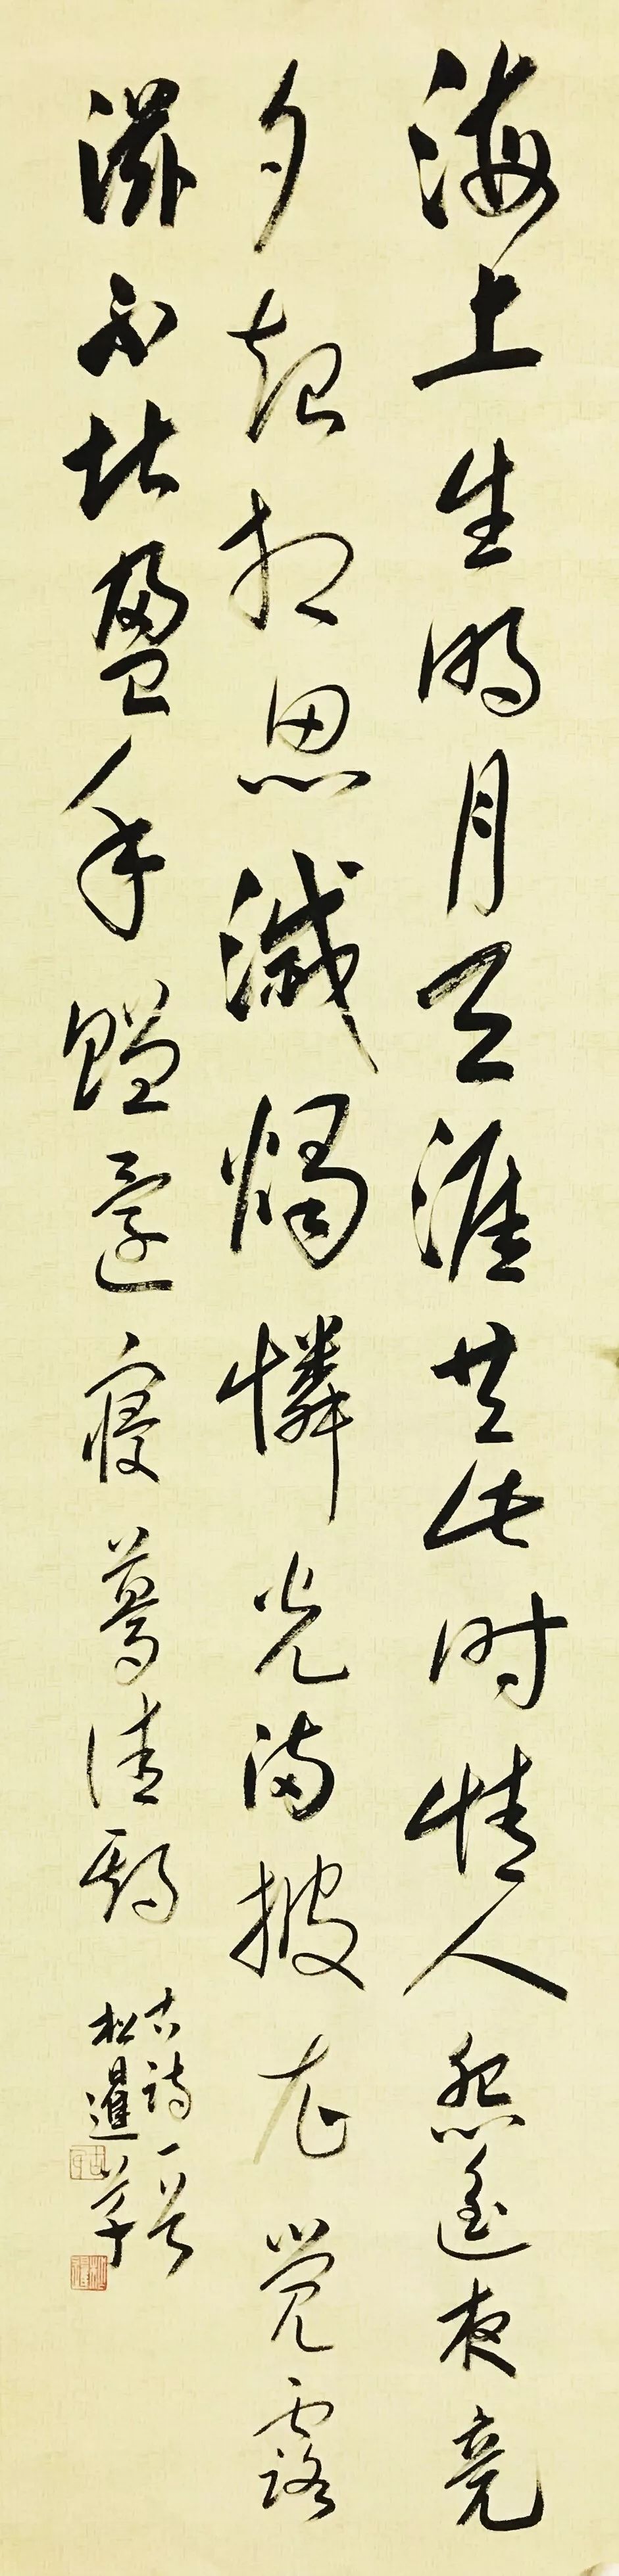 海上生明月天涯共此时情人怨遥夜竟
夕起相思滅燭憐光满披衣觉露
滋不堪盈手赠還寝夢佳期
古詩一首
松